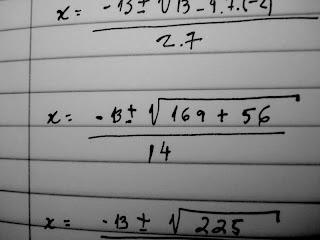 x = -13 ± √13 - 4.7.(-2)
2.7
x = -13 ± √169 + 56
14
x = -13 ± √225